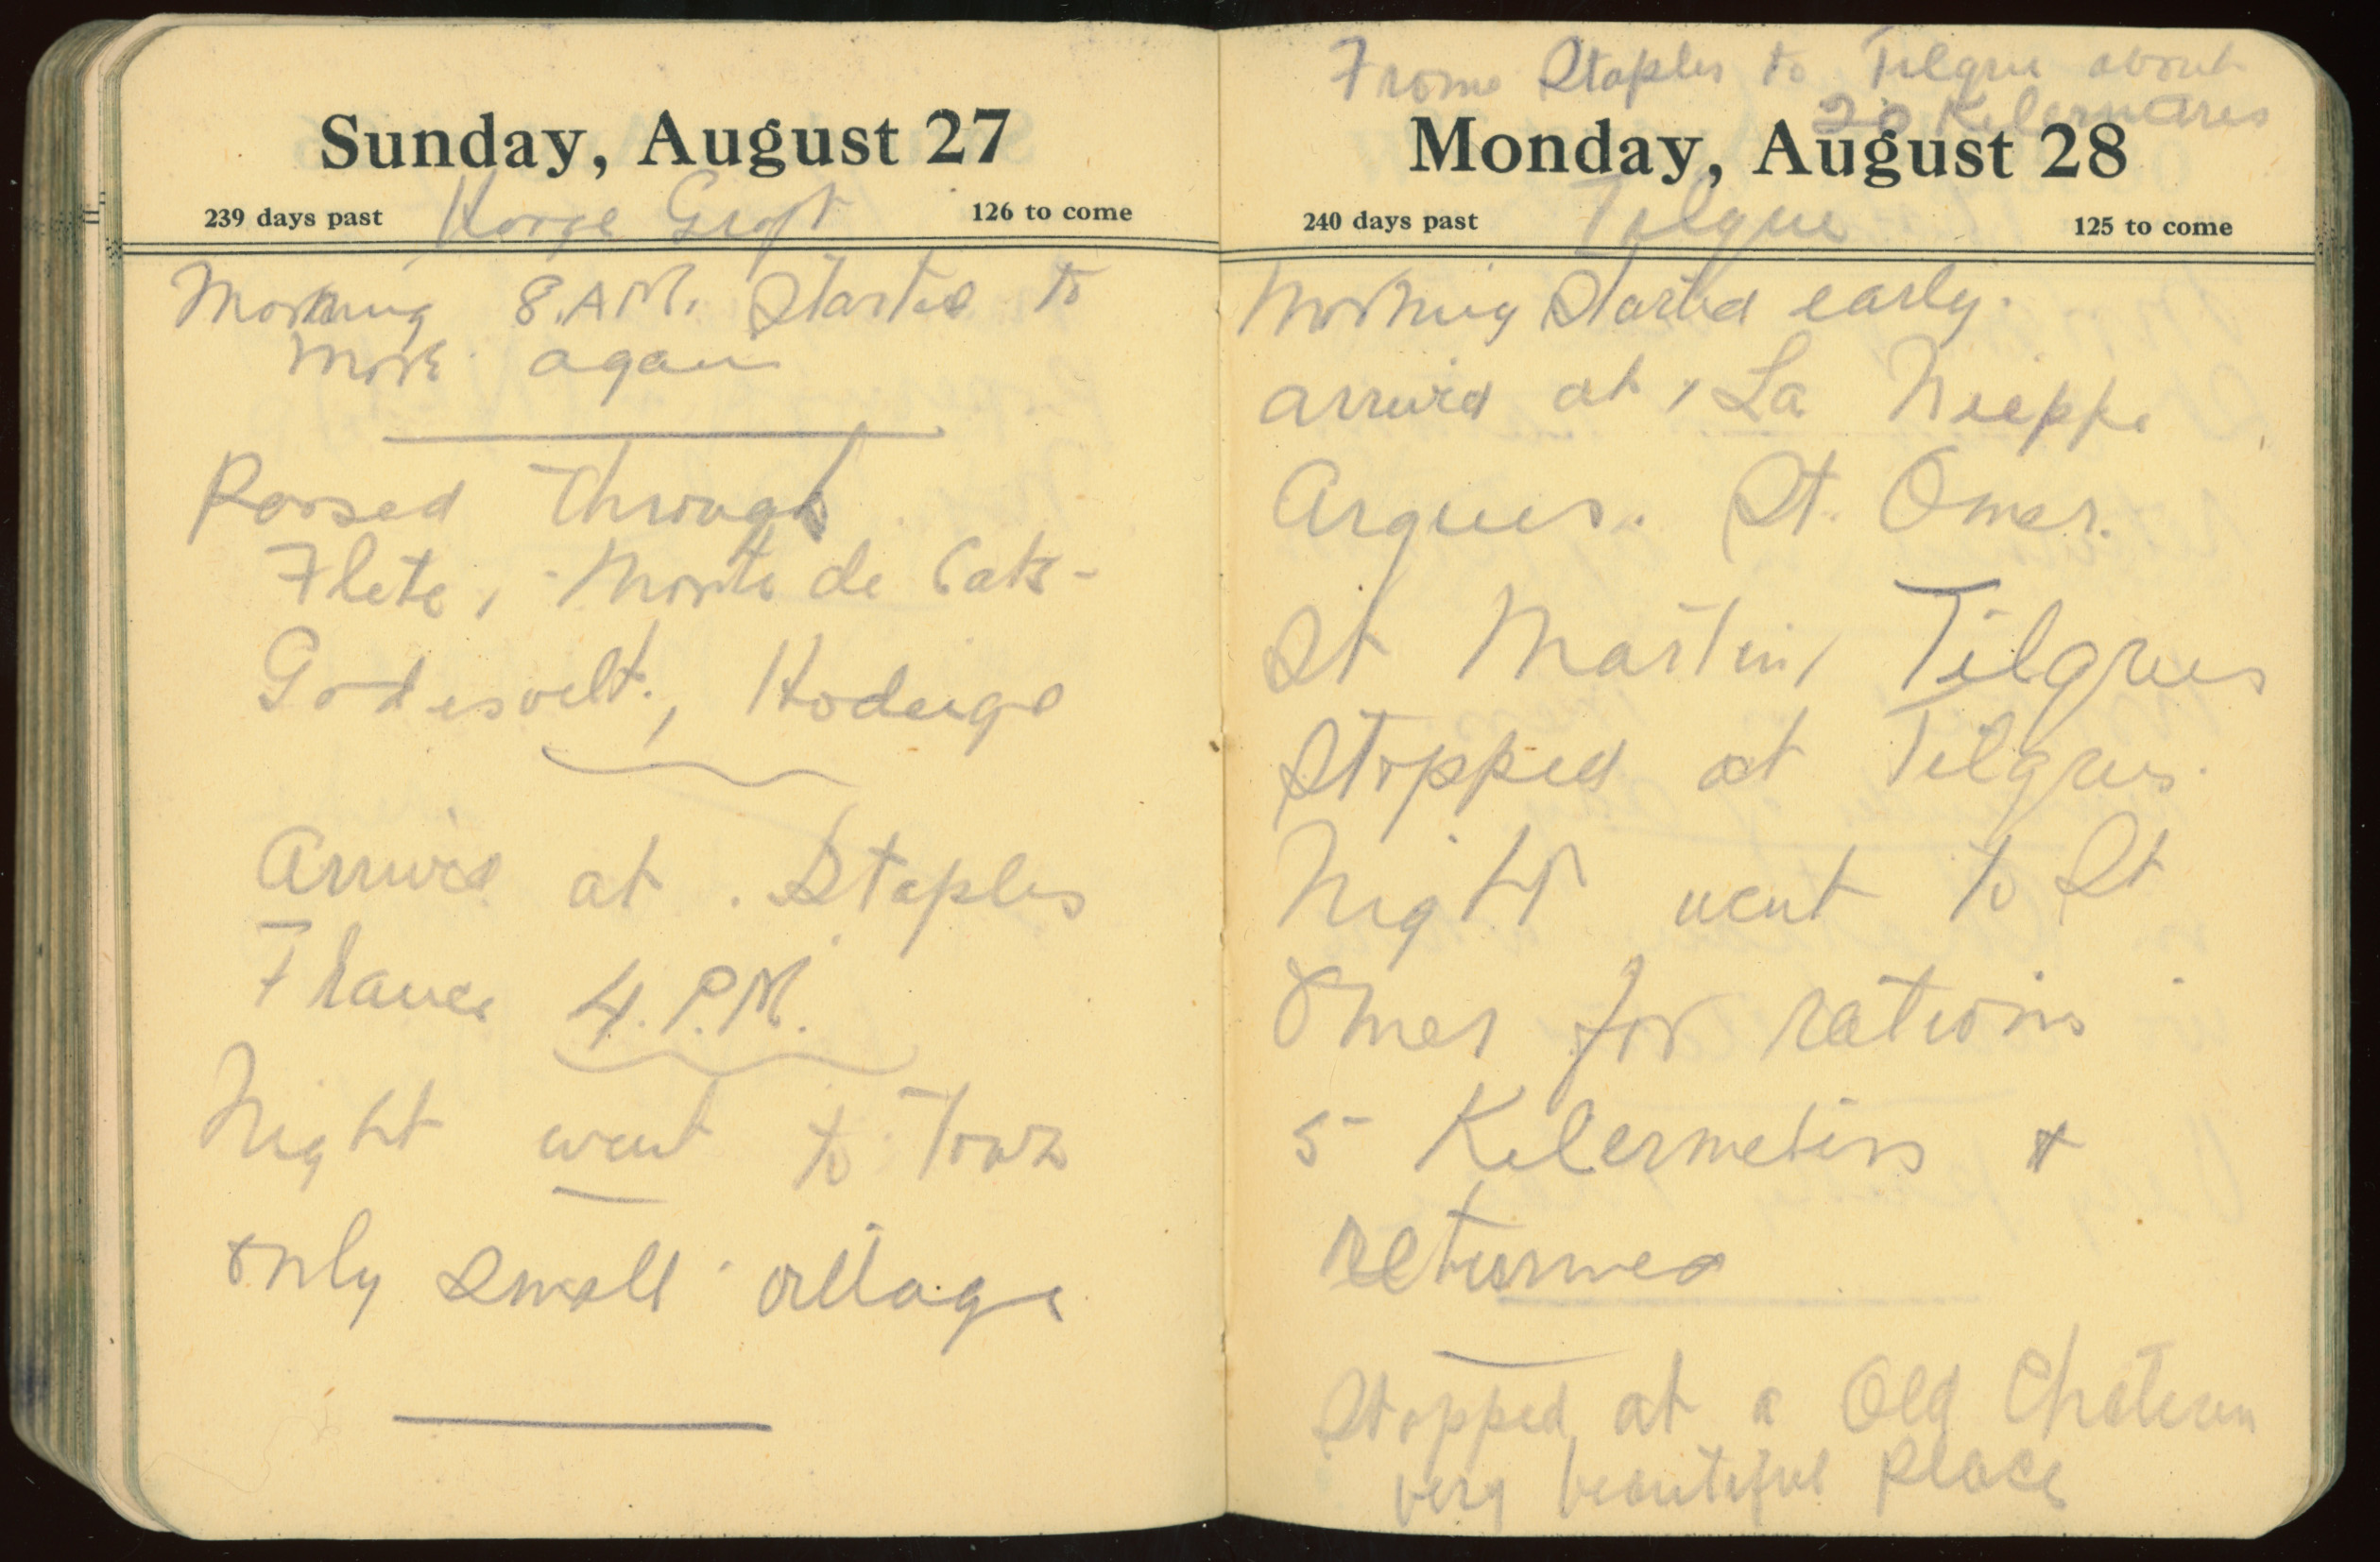 Sunday, August 27
239 days past
126 to come
Morning 8.A.M. Started to
move again
Passed through
Flete, - Monte de Cats -
Godesvelt., Hodeige
Arrived at Staples
France 4.P.M.
Night went to Town
only small village
From Staples to Tilque about
20 Kilermetres
Monday, August 28
240 days past
Tilque
125 to come
Morning Started early.
arrived at, La Nieppe
Arques. St. Omer.
St Martin, Tilques
Stopped at Tilques.
Night went to St
Omer for rations
5 Kilermeters &
returned
Stopped at a Old Chateau
very beautiful place